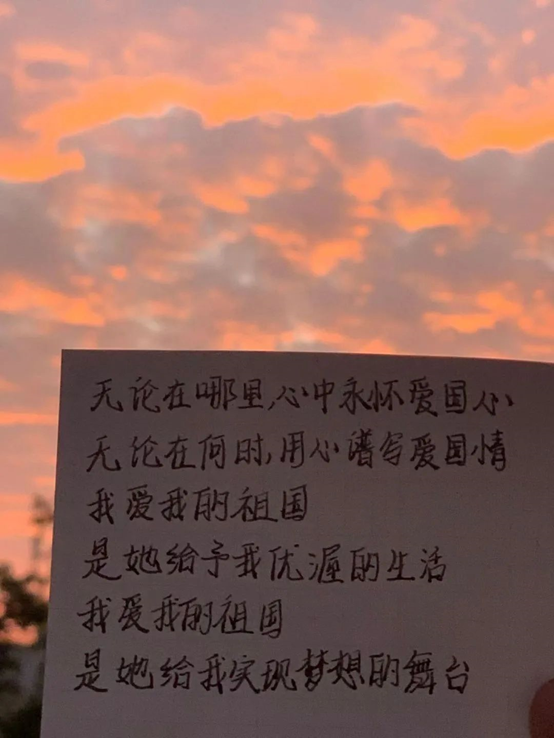 无论在哪里,心中永怀爱国心
无论在何时,用心谱写爱国情
我爱我的祖国
是她给予我优渥的生活
我爱我的祖国
是她给我实现梦想的舞台